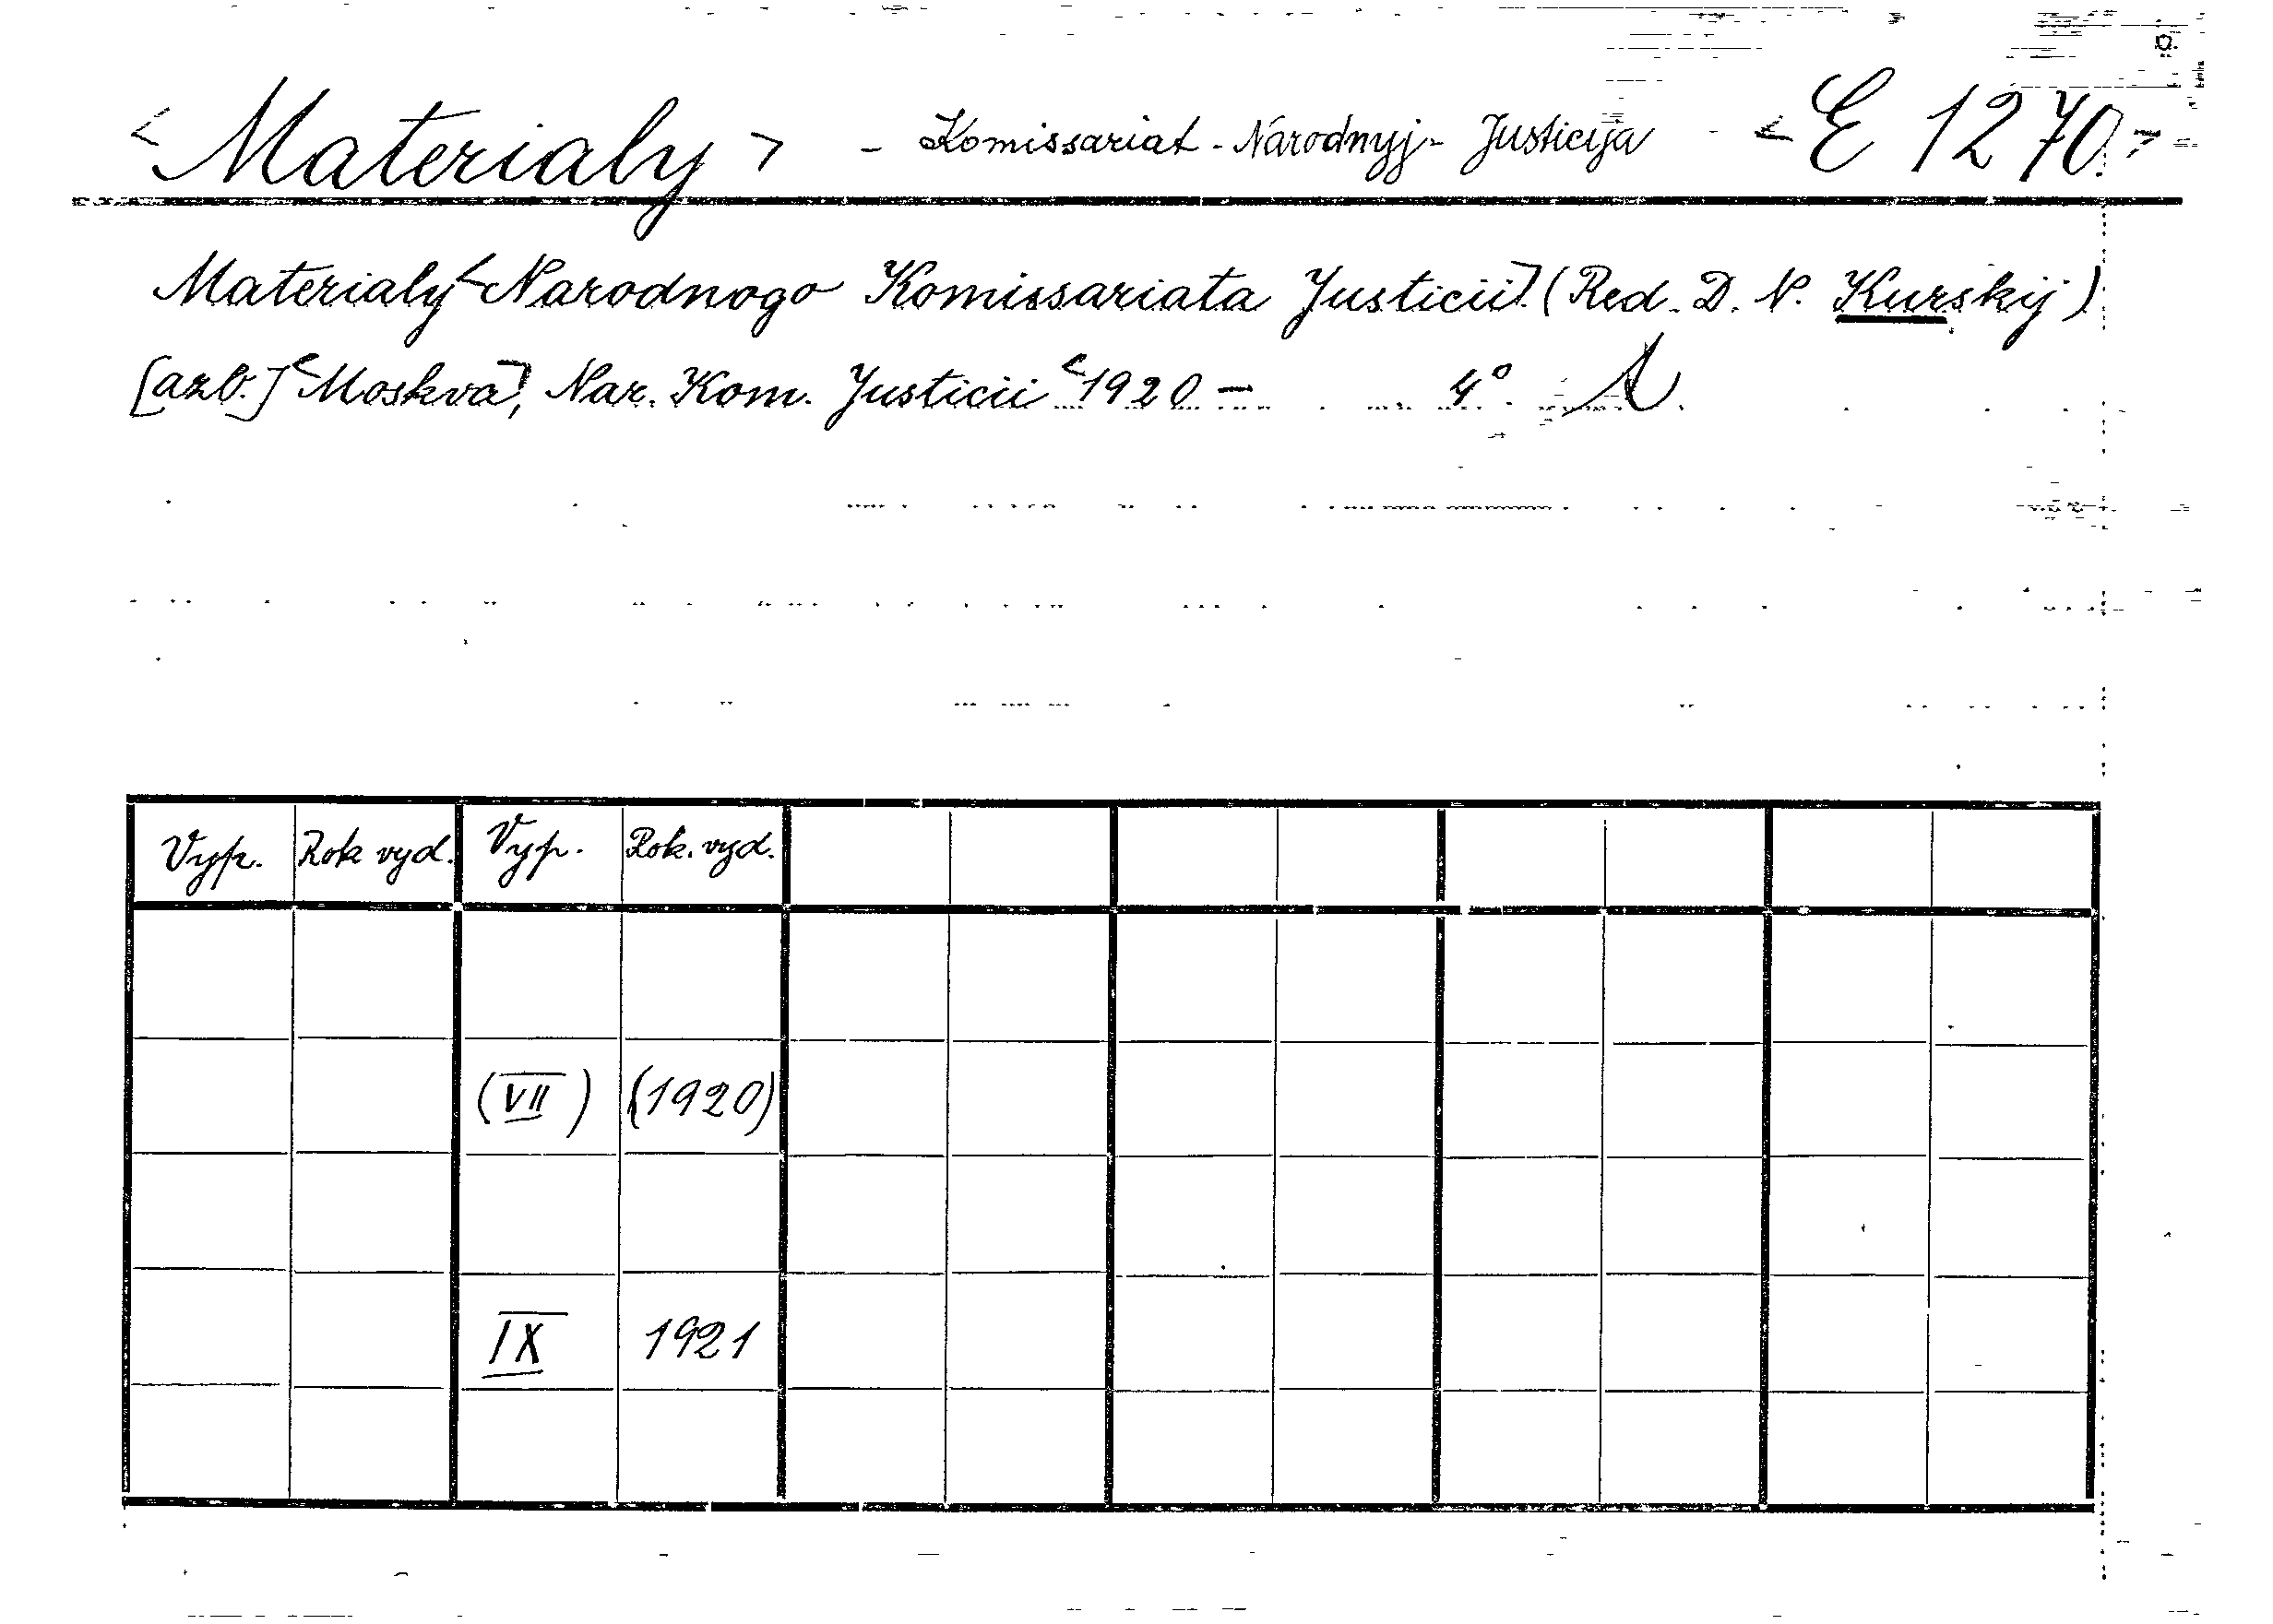 <Materialy> - Komissariat - Národnyj - Justicija - <E 1270.>
Materialy <Narodnogo Komissariata Justicii]. (Red. D. N. Kurskij)
[azb.] <Moskva], Nar. Kom. Justicii <1920 – 4°.
Vyp. Rok vyd. Vyp. Rok. vyd.
(VII) (1920)
IX 1921